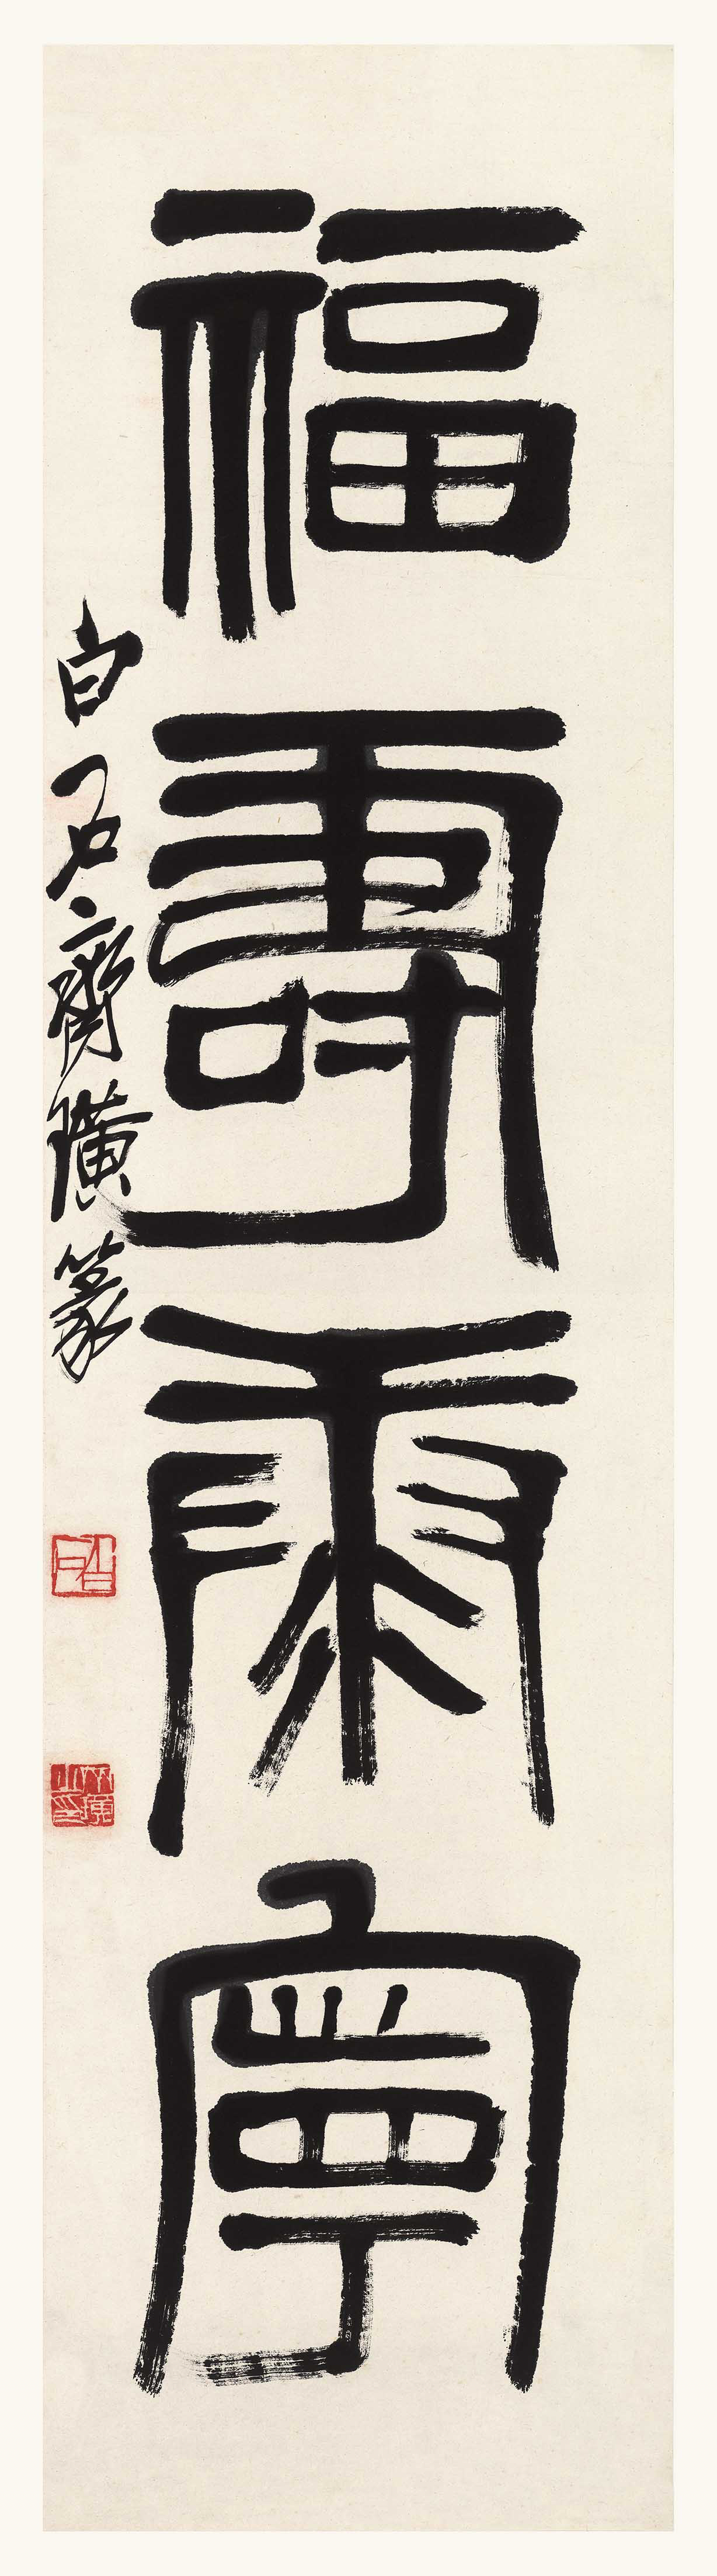 福壽康寧
白石齊璜篆